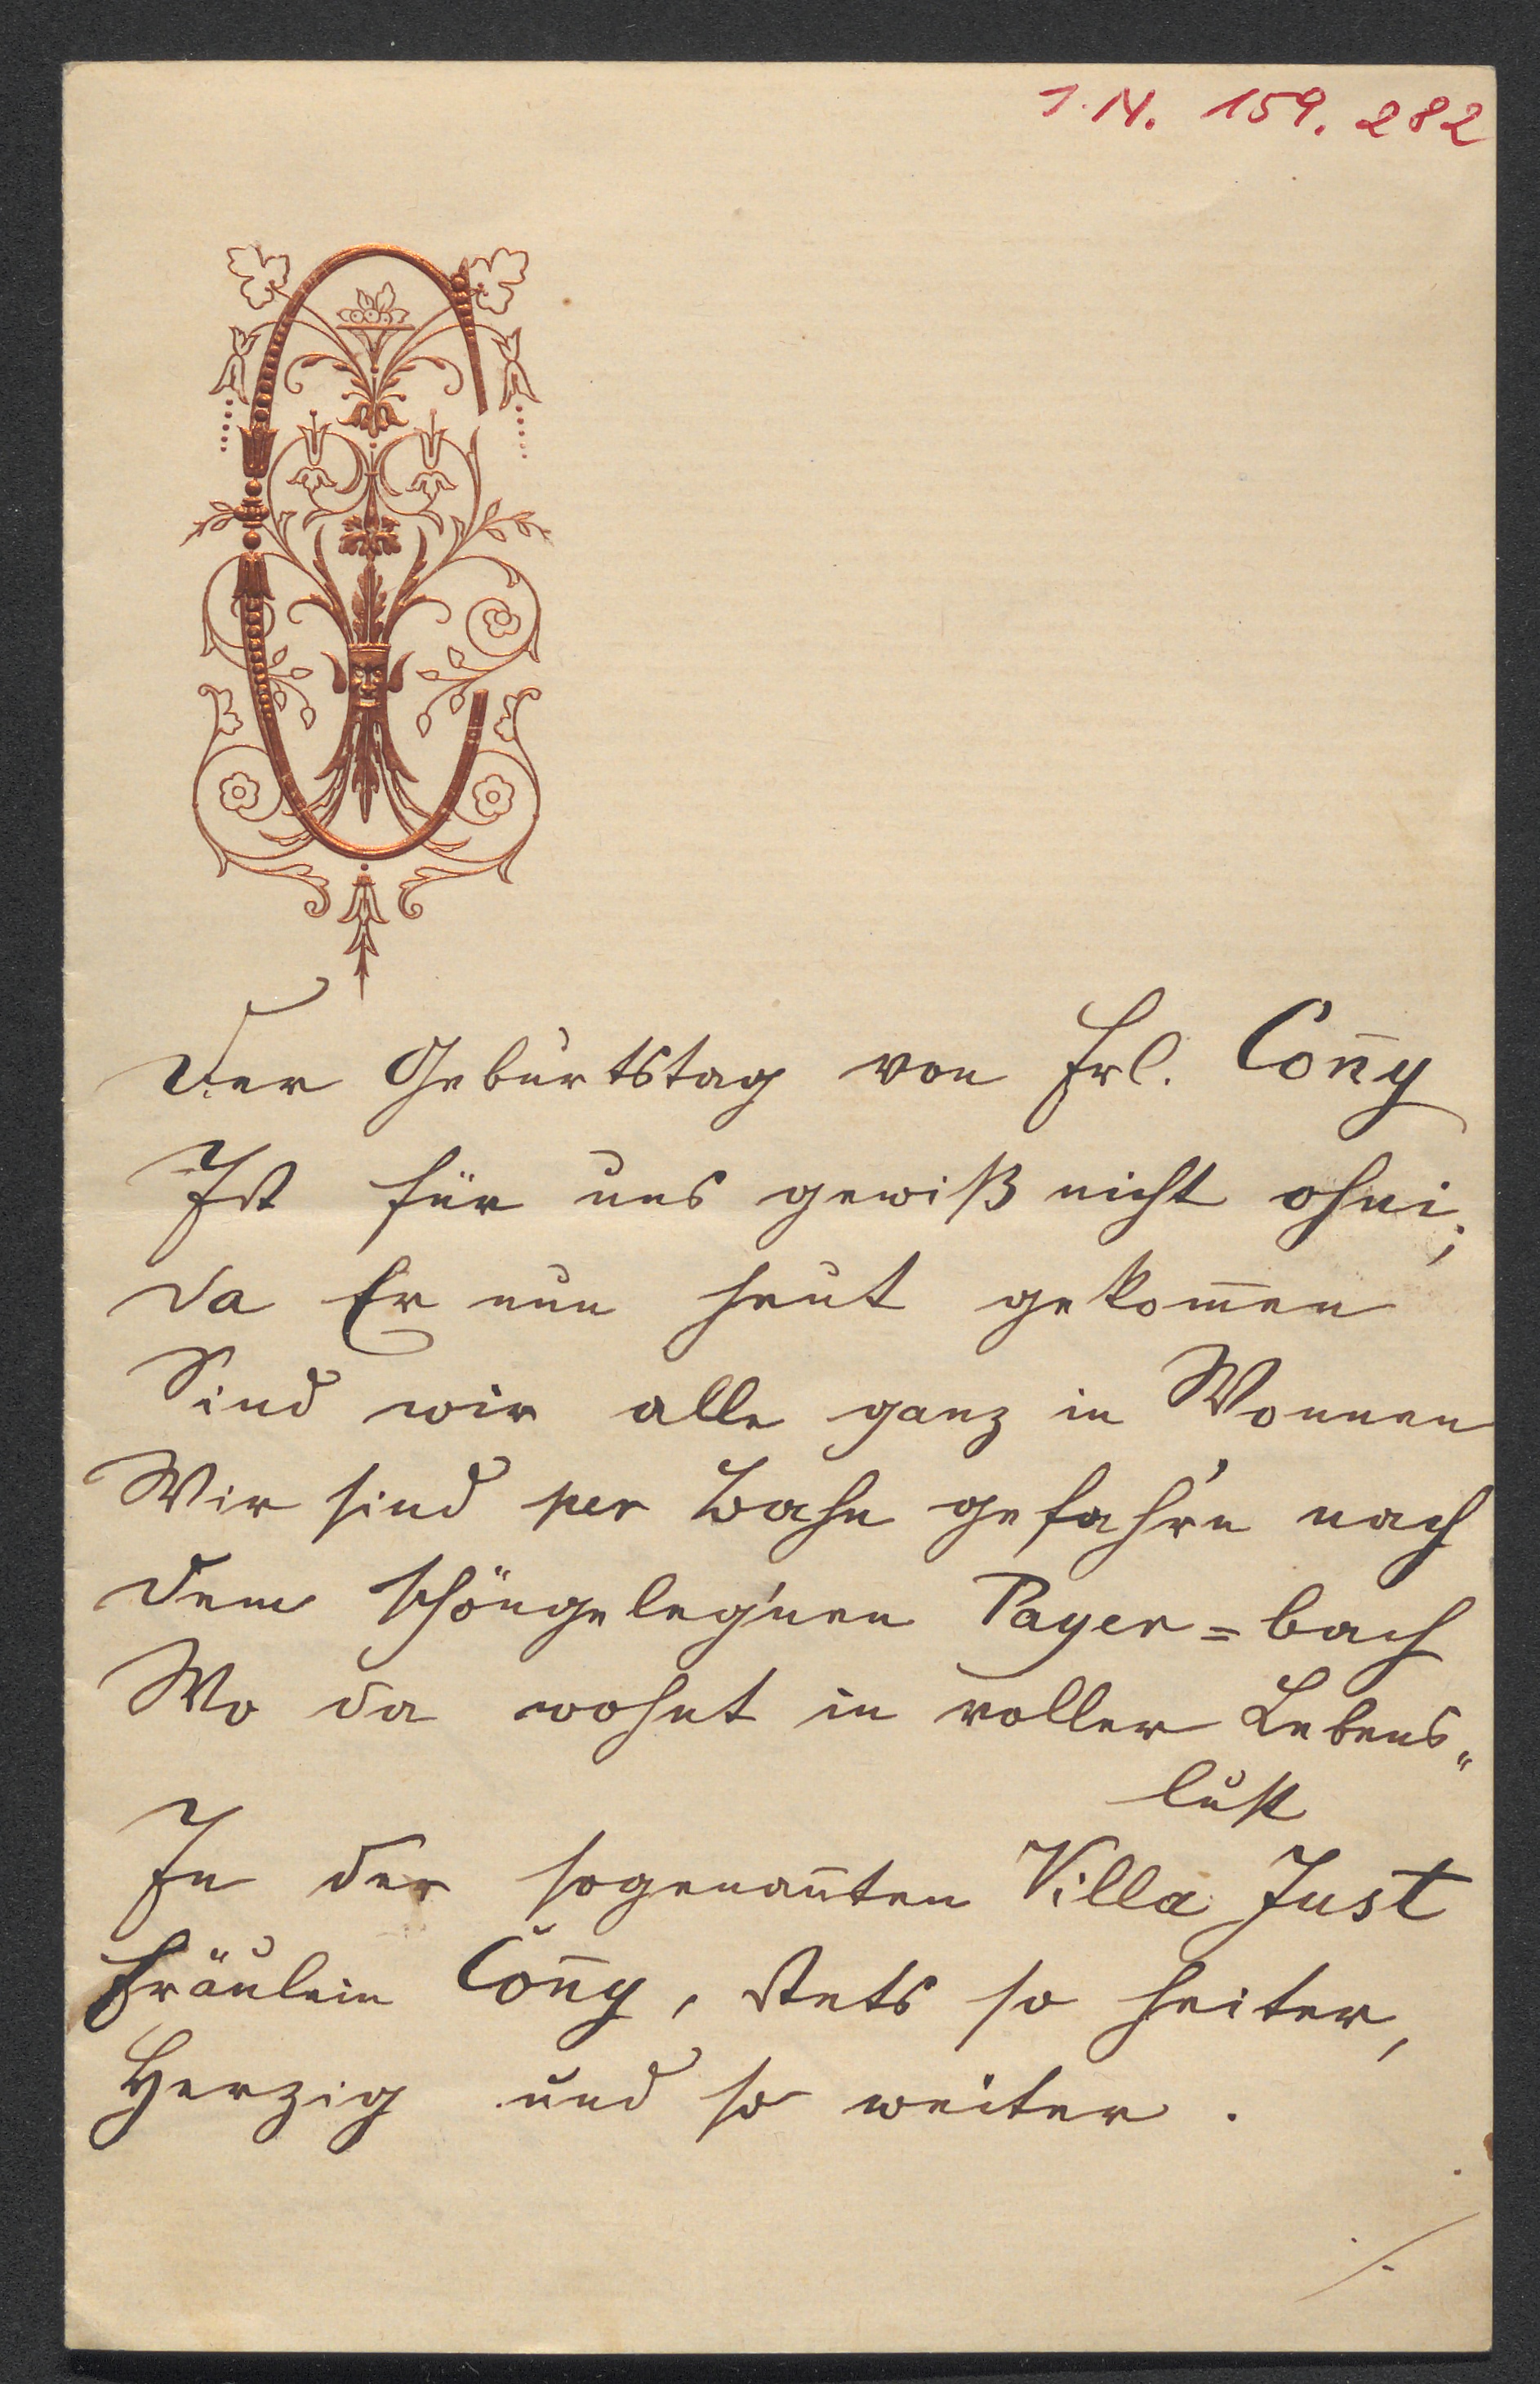 I. N. 159.282
Der Geburtstag von Frl. Con̄y
Ist für uns gewiß nicht ohni;
Da Er nun heut gekom̄en
Sind wir alle ganz in Wonnen
Wir sind per Bahn gefahr'n nach
Dem schöngeleg'nen Payer=bach
Wo da wohnt in voller Lebens„
lust
In der sogenan̄ten Villa Just
Fräulein Con̄y, stets so heiter,
Herzig und so weiter.
./.